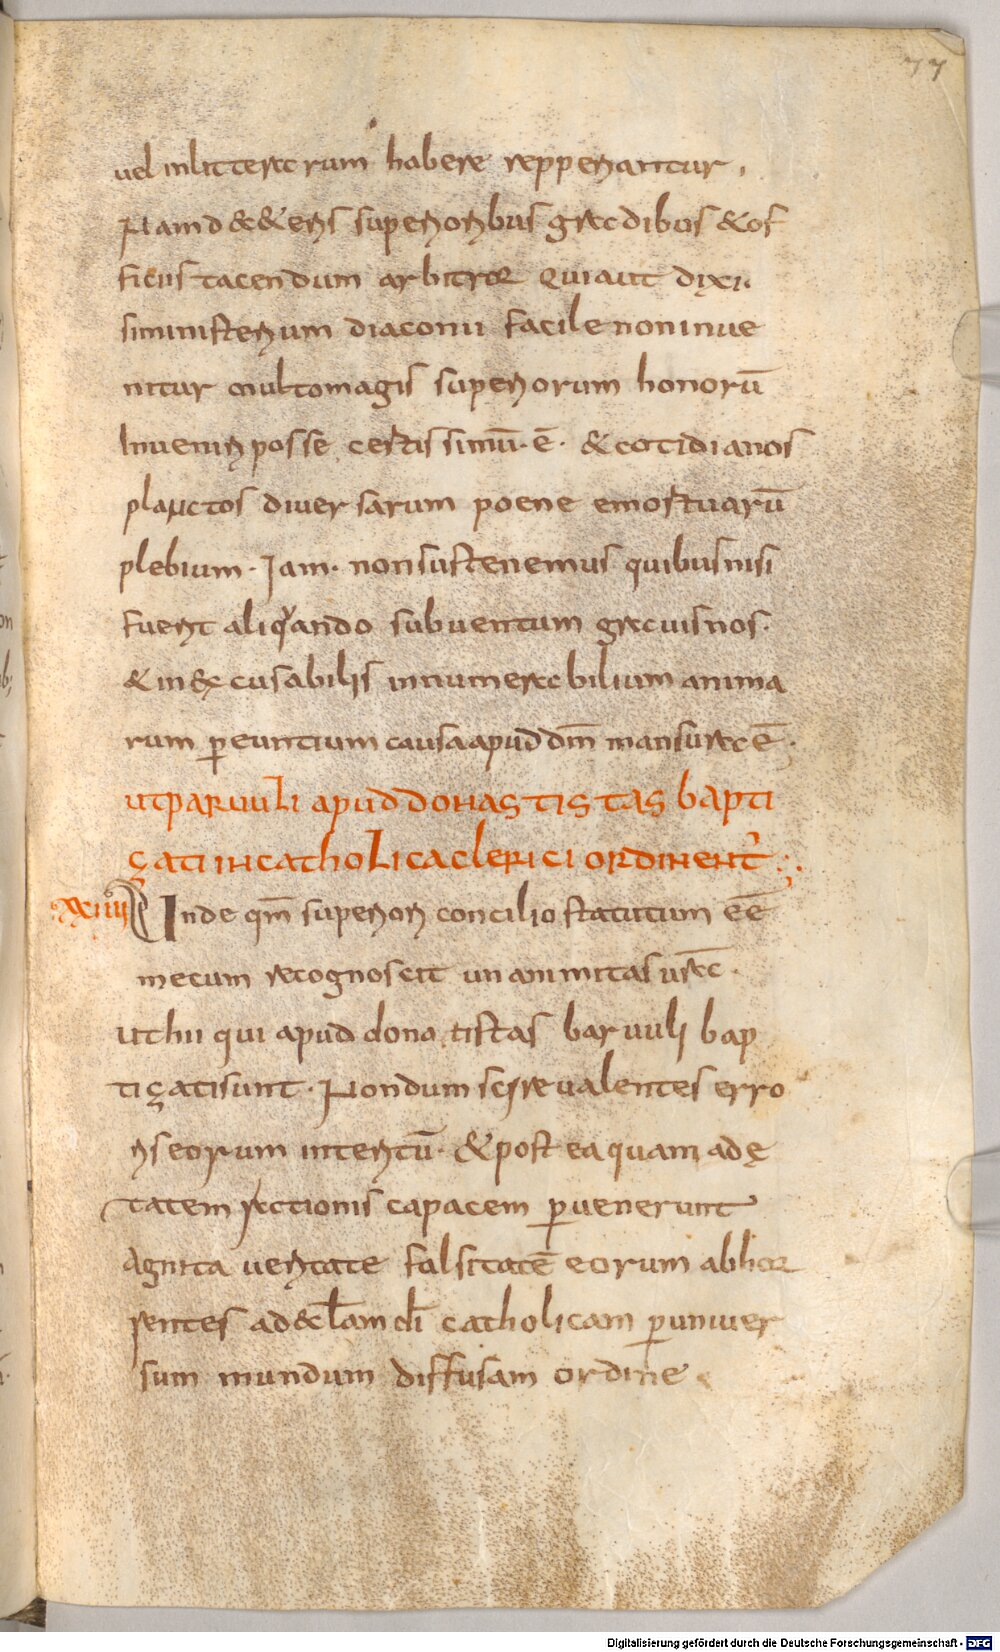 77
uel inlitteratorum habere repperiantur,
Nam d&&eris superioribus gradibus &of
ficiis tacendum arbitror Quiaut dixi.
siministerium diaconii facile noninue
nitur multomagis superiorum honorū
Inueniri posse certissimū.ē. &cotidianos
planctos diuersarum poene emortuarū
plebium. Iam. nonsustenemus quibusnisi
fuerit aliquando subuentum grauisnos.
&inexcusabilis innumerabilium anima
rum p̱euntium causaapud dm̄ mansuraē.
utparuuli apud donastistas bapti
zati incatholicaclerici ordinent̛
xciiii Inde qm̄ superiori concilio statutum eē
mecum recognoscit unanimitas urā.
uthii qui apud donatistas baruuli bap
tizatisunt. Nondum scire ualentes erro
riseorum interitū. &post eaquam adę
tatem rationis capacem p̱uenerunt
Agnita ueritate falsitatē eorum abhor
rentes ad&cl̄am di̅ catholicam p̱uniuer
sum mundum diffusam ordine
Digitalisierung gefördert durch die Deutsche Forschungsgemeinschaft - DFG